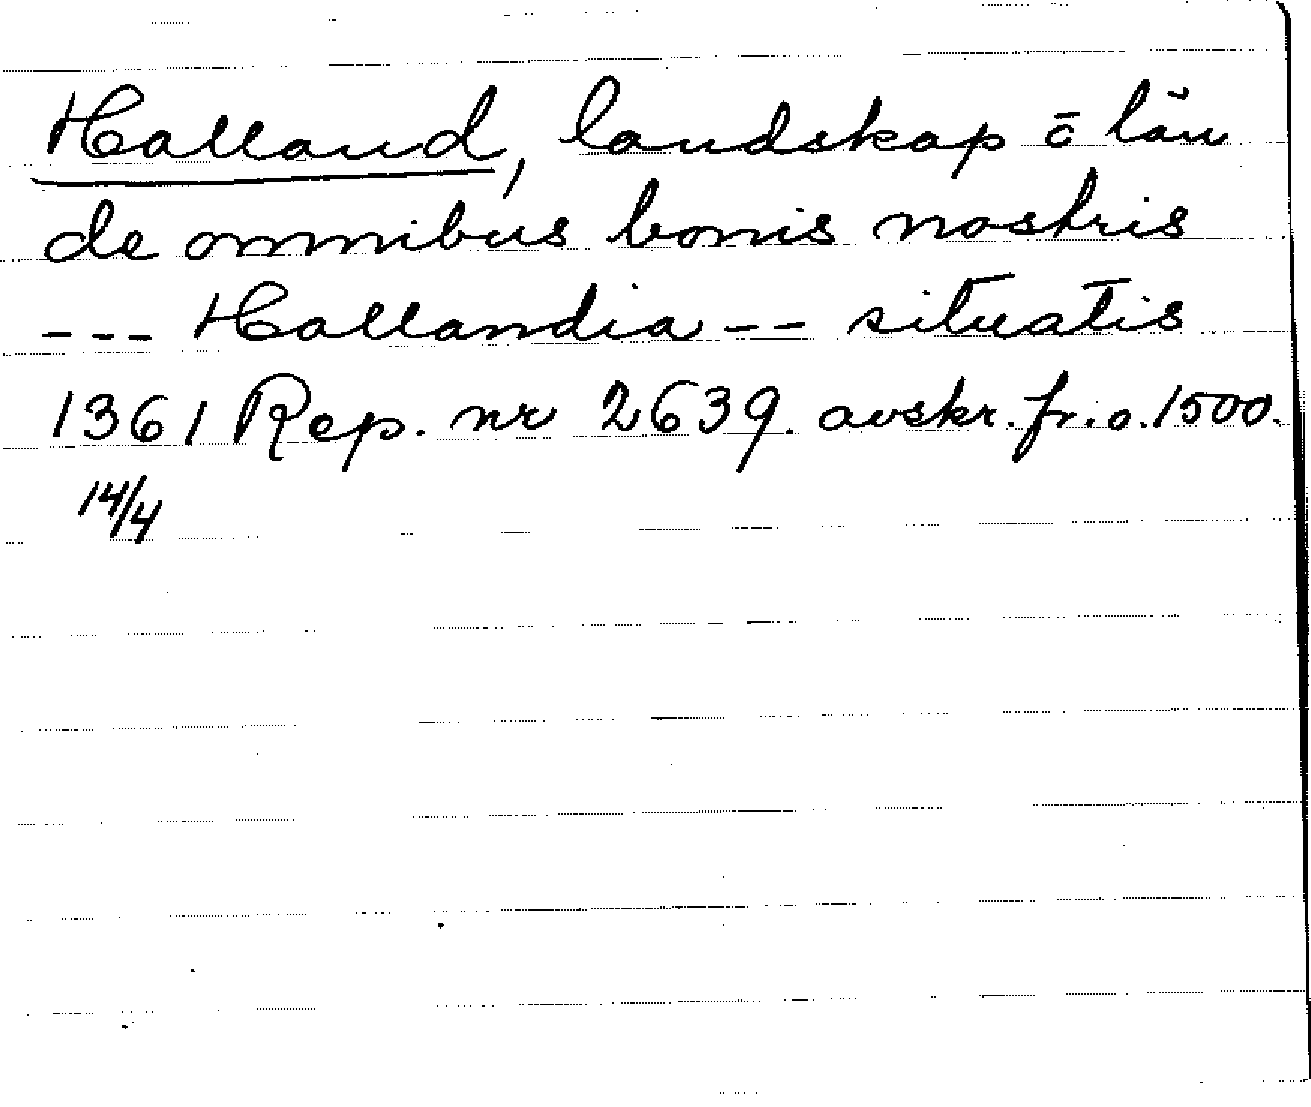 Halland, landskap ō län
de omnibus bonis nostris
--- Hallandia -- situatis
1361 Rep. nr 2639. avskr. fr. o. 1500.
14/4